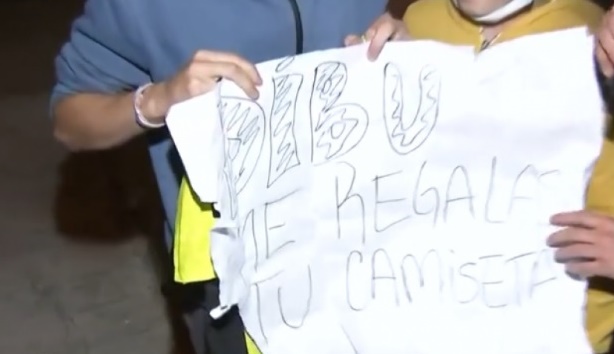 DIBU
ME REGALAS
TU CAMISETA